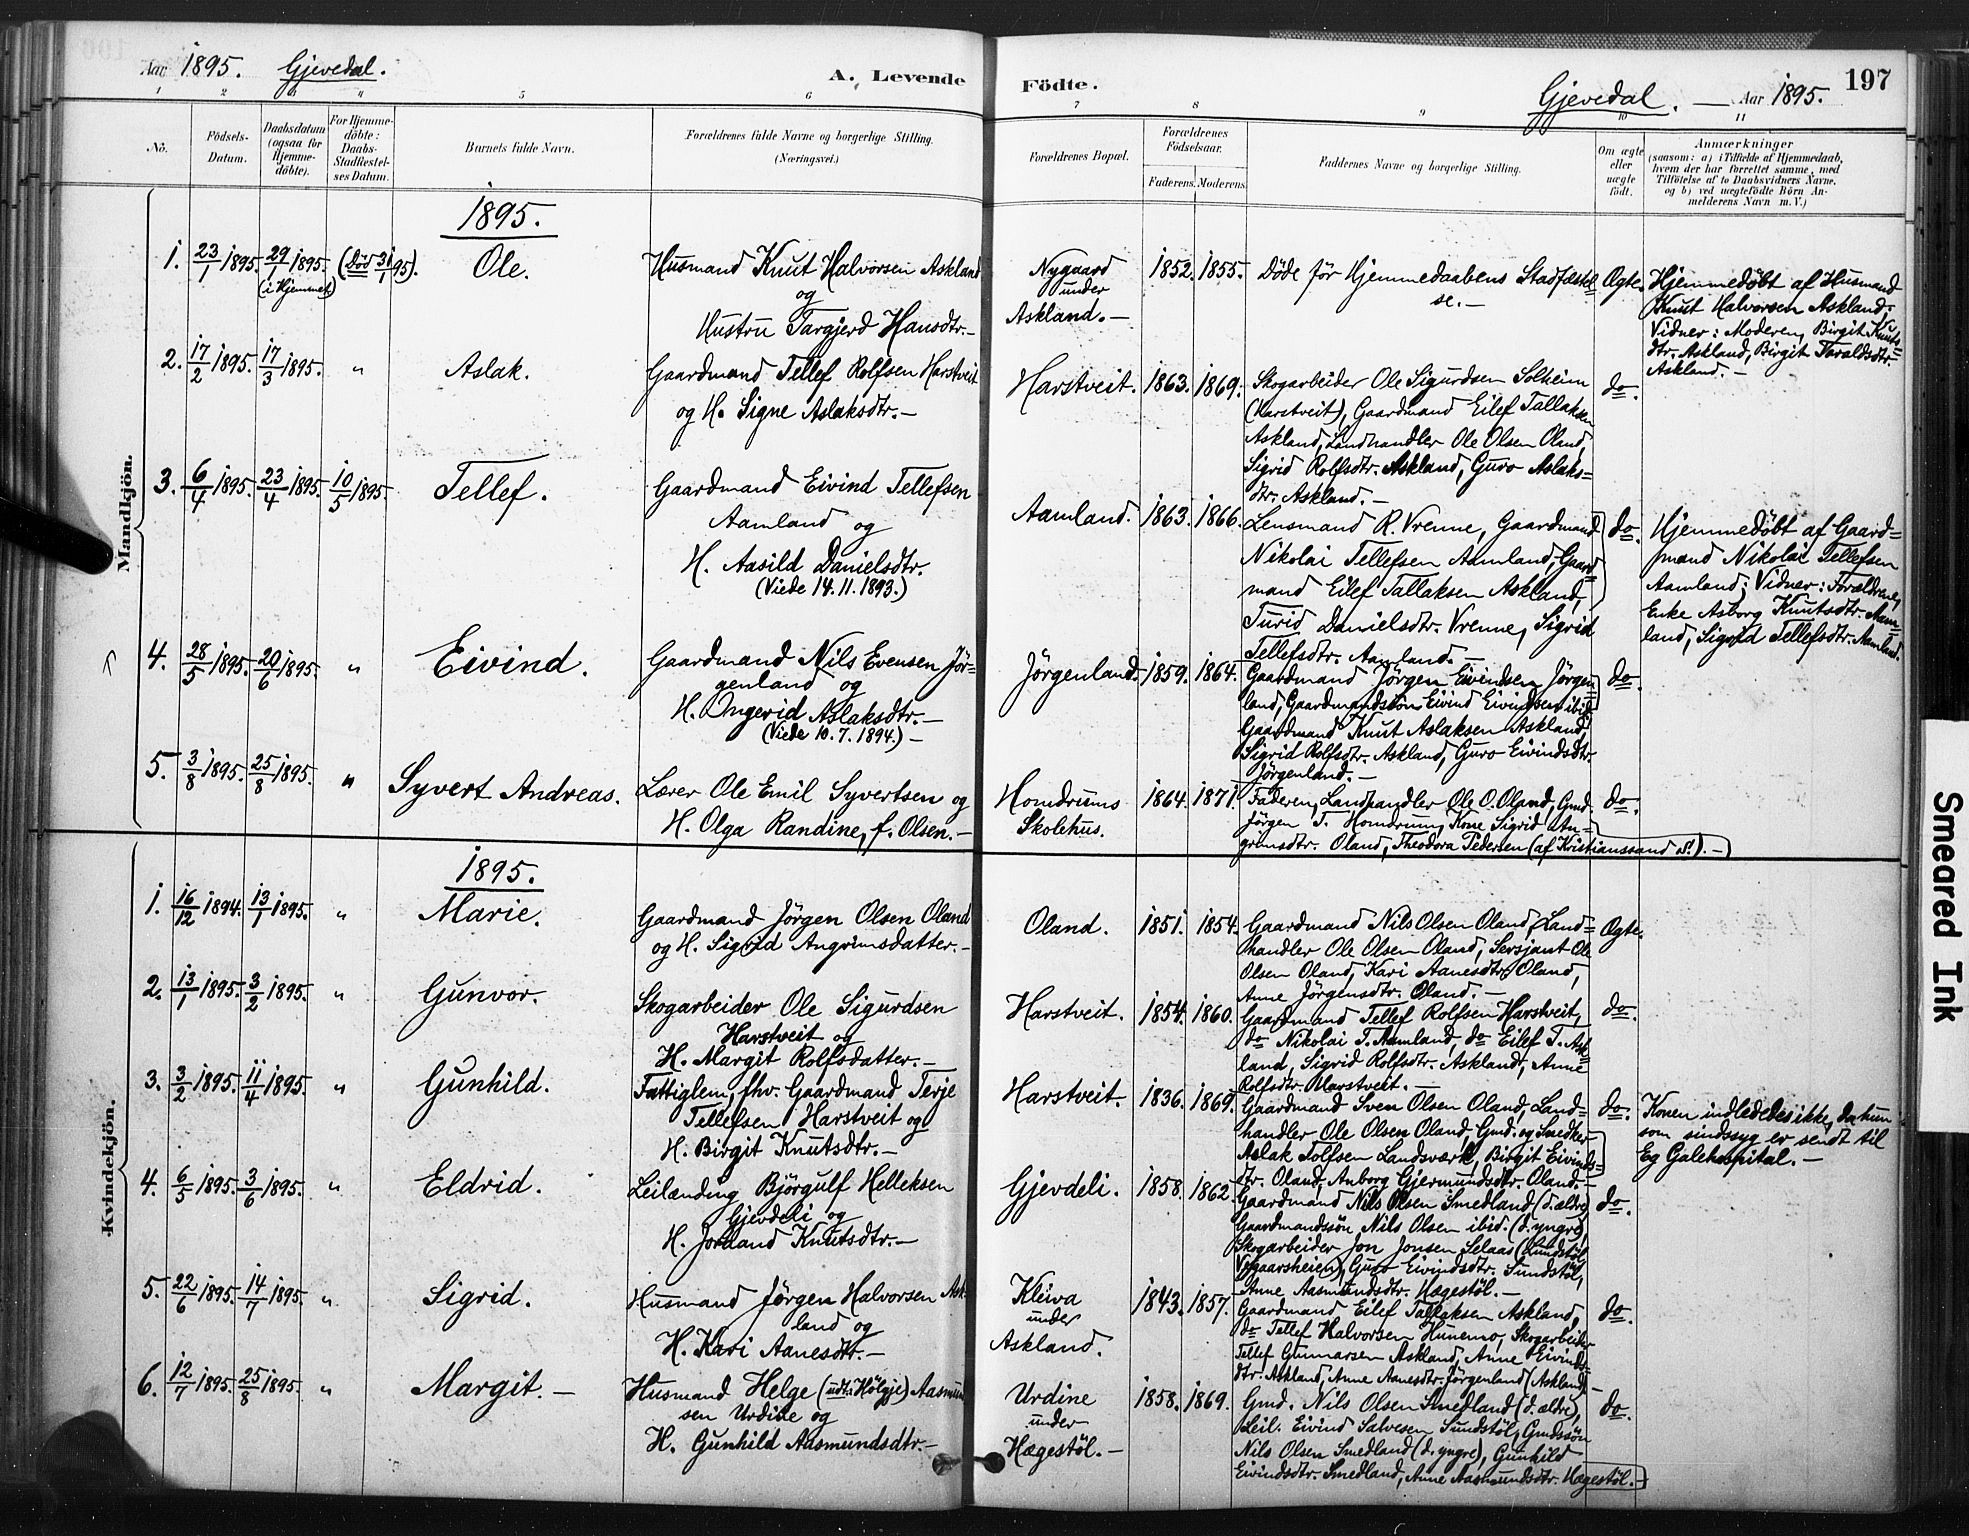 Aar 1895. Gjevedal.
A. Levende
Födte.
Gjevedal. — Aar 1895.
197
1 2 3 4 5 6
7 8 9 10 11
No.
Födsels-
Datum.
Daabsdatum
(ogsaa for
Hjemme-
döbte).
For Hjemme-
döbte:
Daabs-
Stadfæstel-
ses Datum.
Barnets fulde Navn.
Forældrenes fulde Navne og borgerlige Stilling.
(Næringsvei.)
Forældrenes Bopæl.
Forældrenes
Födselsaar.
Faderens. Moderens.
Faddernes Navne og borgerlige Stilling.
Om ægte
eller
uægte
født.
Anmærkninger
(saasom: a) i Tilfælde af Hjemmedaab,
hvem der har forrettet samme, med
Tilföielse af to Daabsvidners Navne,
og b) ved uægtefödte Börn An-
melderens Navn m. V.)
Mandkjön.
1895.
1. 23/1 1895. 29/1 1895. (i Hjemmet) (Död 31/1 95). Ole.
Husmand Knut Halvorsen Askland
og
Hustru Targjerd Hansdtr.—
Nygaard
under
Askland.—
1852. 1855.
Döde för Hjemmedaabens Stadfæstel=
se.—
Ægte.
Hjemmedöbt af Husmand
Knut Halvorsen Askland;
Vidner: Moderen, Birgit Knuts=
dtr. Askland, Birgit Taraldsdtr.
Askland.—
2. 17/2 1895. 17/3 1895. " Aslak.
Gaardmand Tellef Rolfsen Harstveit
og H. Signe Aslaksdtr.—
Harstveit. 1863. 1869.
Skogarbeider Ole Sigurdsen Solheim
(Harstveit), Gaardmand Eilef Tallaksen
Askland, Landhandler Ole Olsen Oland,
Sigrid Rolfsdtr. Askland, Guro Aslaks=
dtr. Askland.—
do.
3. 6/4 1895. 23/4 1895. 10/5 1895. Tellef.
Gaardmand Eivind Tellefsen
Aamland og
H. Aasild Danielsdtr.
(Viede 14.11.1893.)
Aamland. 1863. 1866.
Lensmand R. Vrenne, Gaardmand
Nikolai Tellefsen Aamland, Gaard=
mand Eilef Tallaksen Askland,
Turid Danielsdtr. Vrenne, Sigrid
Tellefsdtr. Aamland.—
do.
Hjemmedöbt af Gaard=
mand Nikolai Tellefsen
Aamland; Vidner: Forældrene,
Enke Asborg Knutsdtr. Aam=
land, Sigrid Tellefsdtr. Aamland.
4. 28/5 1895. 20/6 1895. " Eivind.
Gaardmand Nils Evensen Jör=
genland og
H. Ingerid Aslaksdtr.—
(Viede 10.7.1894.)—
Jörgenland. 1859. 1864.
Gaardmand Jörgen Eivindsen Jörgen=
land, Gaardmandssön Eivind Eivindsen ibid.
Gaardmand Knut Aslaksen Askland,
Sigrid Rolfsdtr. Askland, Guro Eivindsdtr.
Jörgenland.—
do.
5. 3/8 1895. 25/8 1895. " Syvert Andreas.
Lærer Ole Emil Syvertsen og
H. Olga Randine, f. Olsen.—
Homdrums
Skolehus.
1864. 1871.
Faderen, Landhandler Ole O. Oland, Gmd.
Jörgen T. Homdrum, Kone Sigrid An=
grimsdtr. Oland, Theodora Pedersen (af Kristianssand S.).—
do.
Kvindekjön.
1895.
1. 16/12 1894. 13/1 1895. " Marie.
Gaardmand Jörgen Olsen Oland
og H. Sigrid Angrimsdatter.—
Oland. 1851. 1854.
Gaardmand Nils Olsen Oland, Land=
handler Ole Olsen Oland, Sersjant Ole
Olsen Oland, Kari Aanesdtr. Oland,
Anne Jörgensdtr. Oland.—
Ægte.
2. 13/1 1895. 3/2 1895. " Gunvor.
Skogarbeider Ole Sigurdsen
Harstveit og
H. Margit Rolfsdatter.—
Harstveit. 1854. 1860.
Gaardmand Tellef Rolfsen Harstveit,
do Nikolai T. Aamland, do Eilef T. Ask=
land, Sigrid Rolfsdtr. Askland, Anne
Rolfsdtr. Harstveit.—
do.
3. 3/2 1895. 11/4 1895. " Gunhild.
Fattiglem, fhv. Gaardmand Terje
Tellefsen Harstveit og
H. Birgit Knutsdtr.—
Harstveit. 1836. 1869.
Gaardmand Sven Olsen Oland, Land=
handler Ole Olsen Oland, Gmd. og Smed
Aslak Tolfsen Landsværk, Birgit Eivinds=
dtr. Oland, Anborg Gjermundsdtr. Oland.—
do.
Konen indledes ikke, da hun
som sindssyg er sendt til
Eg Galehospital.—
4. 6/5 1895. 3/6 1895. " Eldrid.
Leilænding Björgulf Helleksen
Gjevdeli og
H. Joraand Knutsdtr.—
Gjevdeli. 1858. 1862.
Gaardmand Nils Olsen Smedland (d. ældre),
Gaardmandssön Nils Olsen ibid. (d. yngre),
Skogarbeider Jon Jonsen Selaas (Sundstöl,
Vegaarsheien), Guro Eivindsdtr. Sundstöl,
Anne Aasmundsdtr. Hægestöl.—
do.
5. 22/6 1895. 14/7 1895. " Sigrid.
Husmand Jörgen Halvorsen Ask=
land og
H. Kari Aanesdtr.—
Kleiva
under
Askland.
1843. 1857.
Gaardmand Eilef Tallaksen Askland,
do Tellef Halvorsen Hunemo, Skogarbeider
Tellef Gunnarsen Askland, Anne Eivinds=
dtr. Askland, Anne Aanesdtr. Jörgenland (Askland).—
do.
6. 12/7 1895. 25/8 1895. " Margit.—
Husmand Helge (udt. Hölgje) Aasmun
sen Urdine og
H. Gunhild Aasmundsdtr.—
Urdine
under
Hægestöl.—
1858. 1869.
Gmd. Nils Olsen Smedland (d. ældre),
Leil. Eivind Salvesen Sundstöl, Gmdssön
Nils Olsen Smedland (d. yngre), Gunhild
Eivindsdtr. Smedland, Anne Aasmundsdtr. Hægestöl.—
do.
Smeared Ink